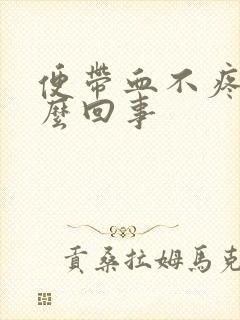 便帶血不疼
麼回事
貢桑拉姆馬克